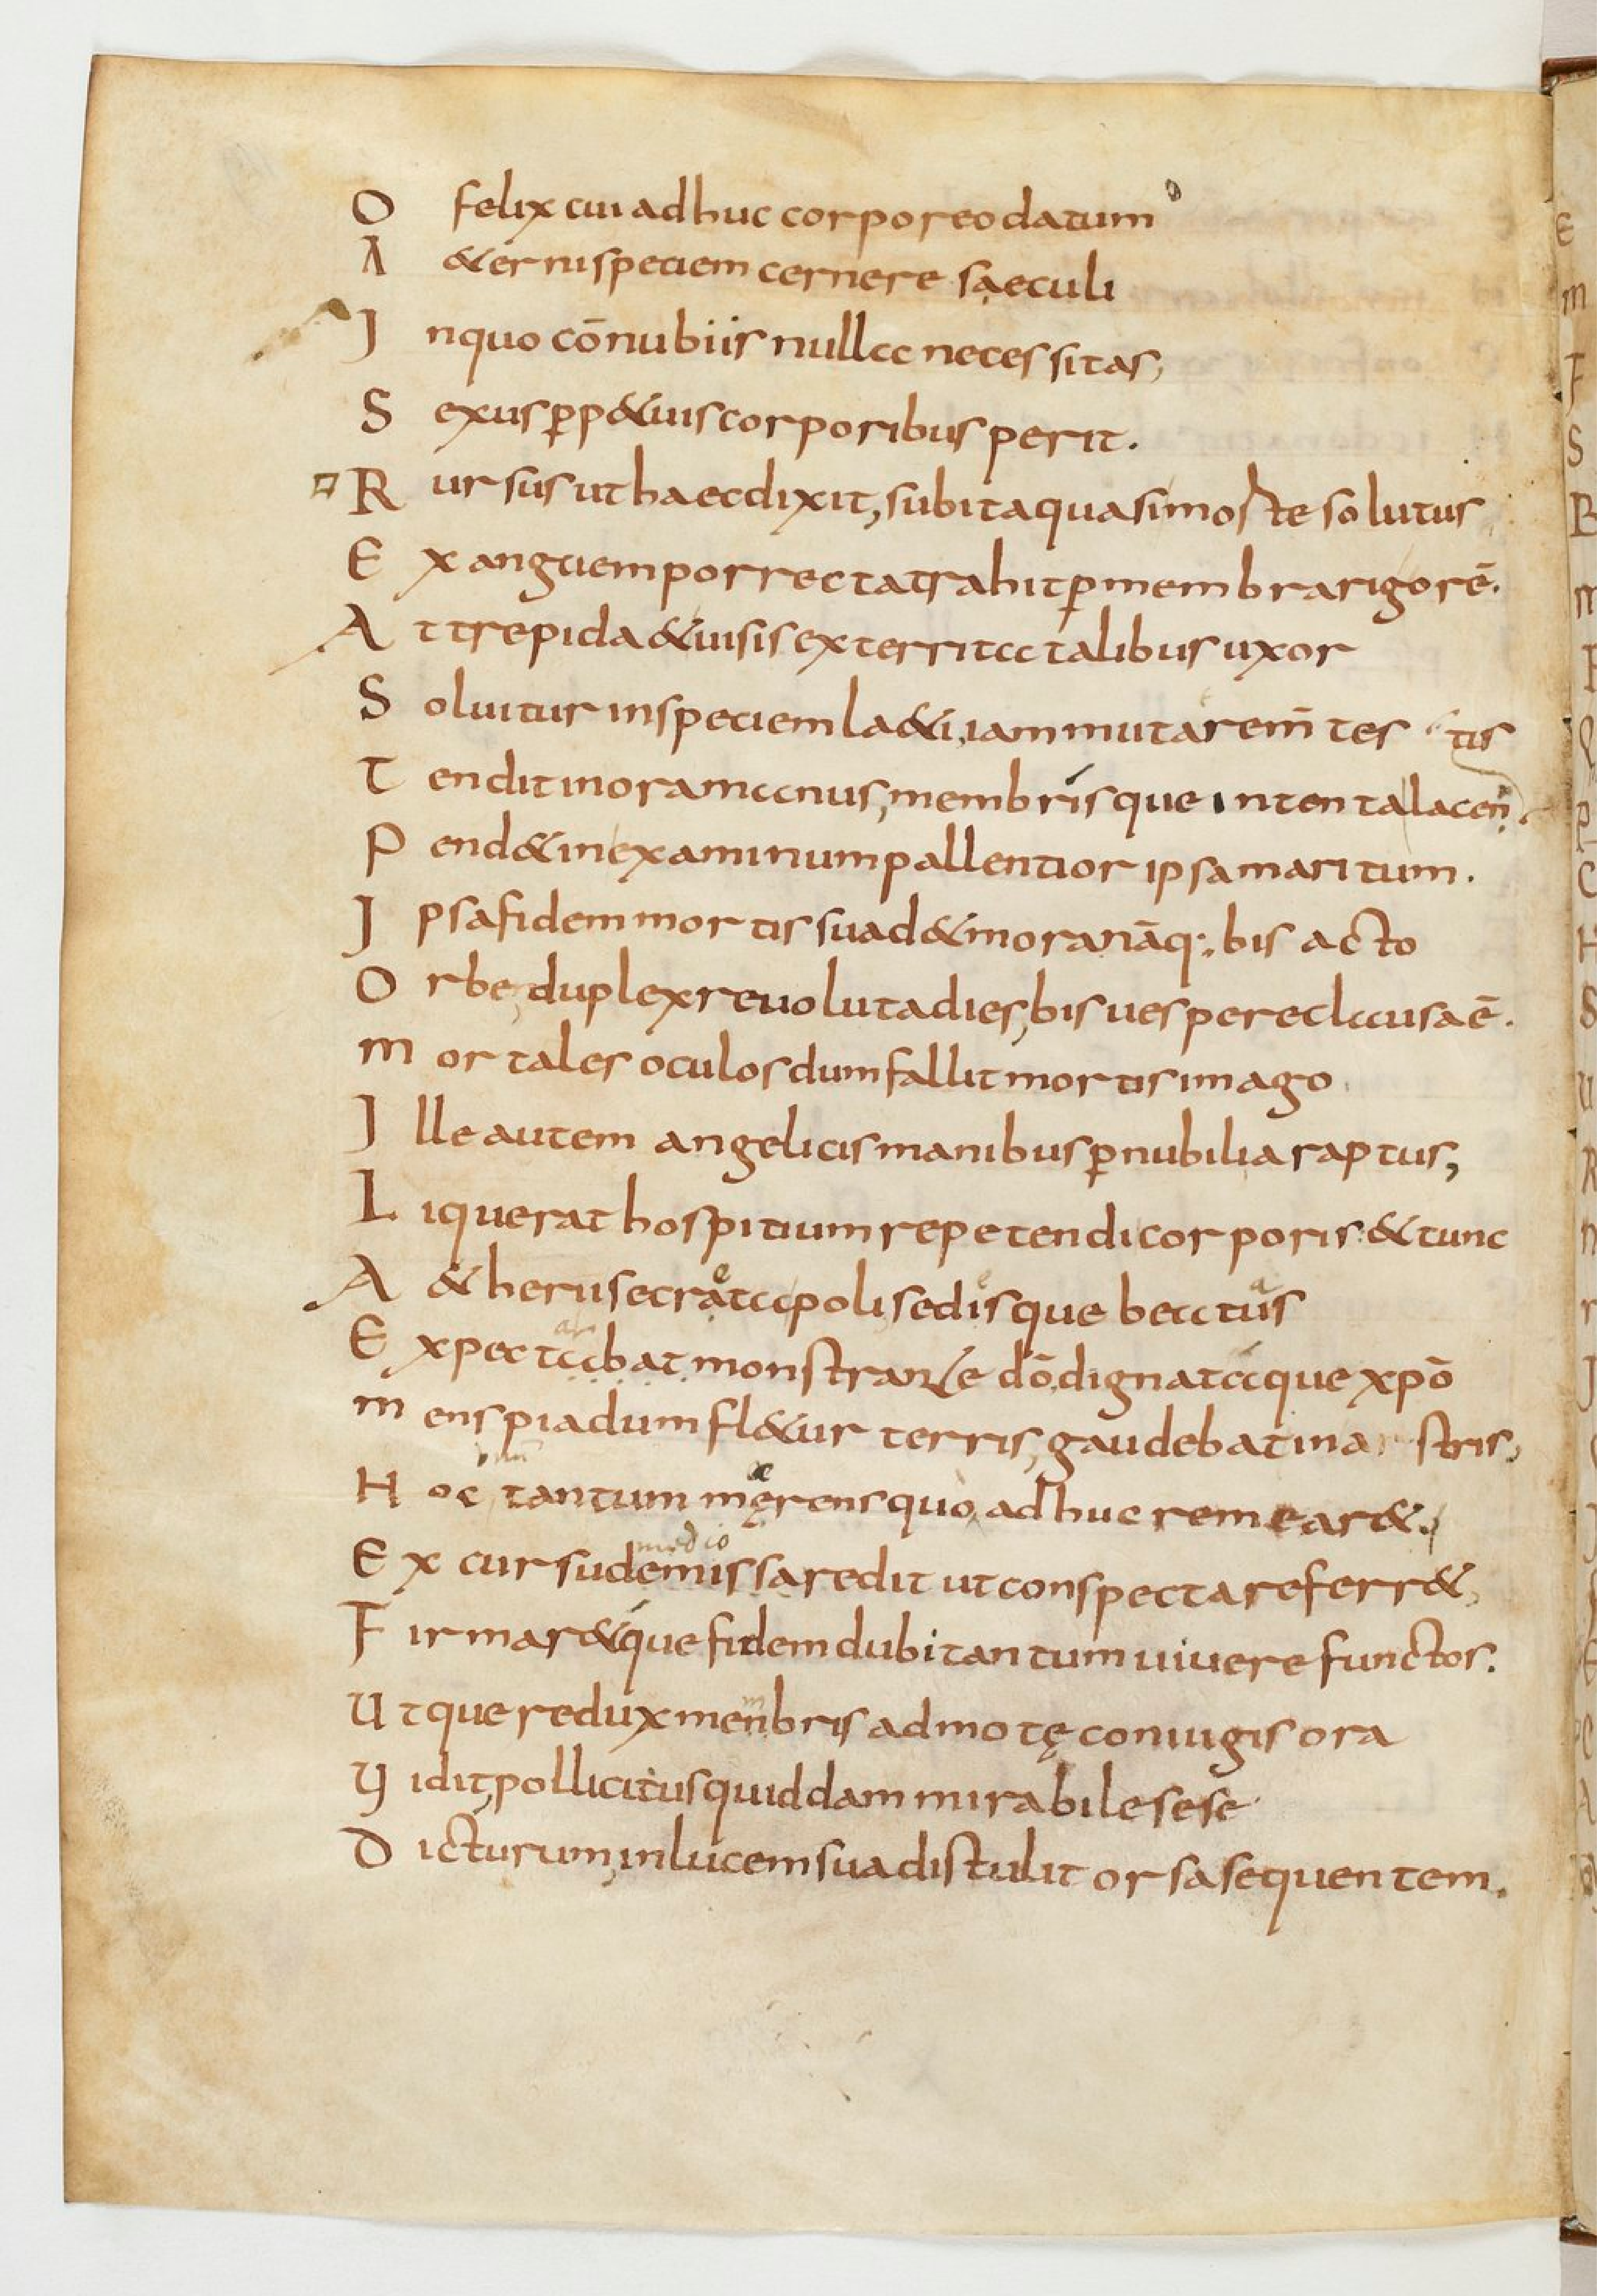 O felix cui adhuc corporeo datum
A &erni speciem cernere saeculi
J nquo cōnubiis nulla necessitas,
S exus ꝑp&uis corporibus perit.
R ursus ut haec dixit, subita quasi morte solutus
E xanguem porrecta trahit ꝑ membra rigorē.
A t trepida & uisis exterrita talibus uxor
S oluitur in speciem la&i, iam muta rem̄ tes tis
T endit in ora manus, membrisque intenta iacen
P end& inexaminum pallentior ipsa maritum.
J psa fidem mortis suad& mora nāq; bis acto
O rbe, duplex reuoluta dies, bis uespere clausa ē.
m ortales oculos dum fallit mortis imago
J lle autem angelicis manibus ꝑ nubilia raptus,
L iquerat hospitium repetendi corporis & tunc
A &herii secrata poli sedisque beatus
E xpectabat monstrante dō, dignataque xpō
m ens pia dum fl&ur terris, gaudebat in a stris,
H oc tantum męrens quo adhuc remear&.
E x cursu medio demissa redit ut conspecta referr&,
F irmar&que fidem dubitantum uiuere functos.
U tque redux menbris admotę coniugis ora
V idit, pollicitus quiddam mirabile sese
D icturum, in lucem sua distulit orsa sequentem.